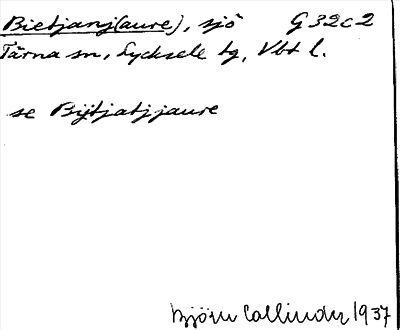 Bietjanj(aure), sjö G 32 c 2
Tärna sn, Lycksele tg, Vbt l.
se Bijtjatjjaure
Björn Collinder 1937